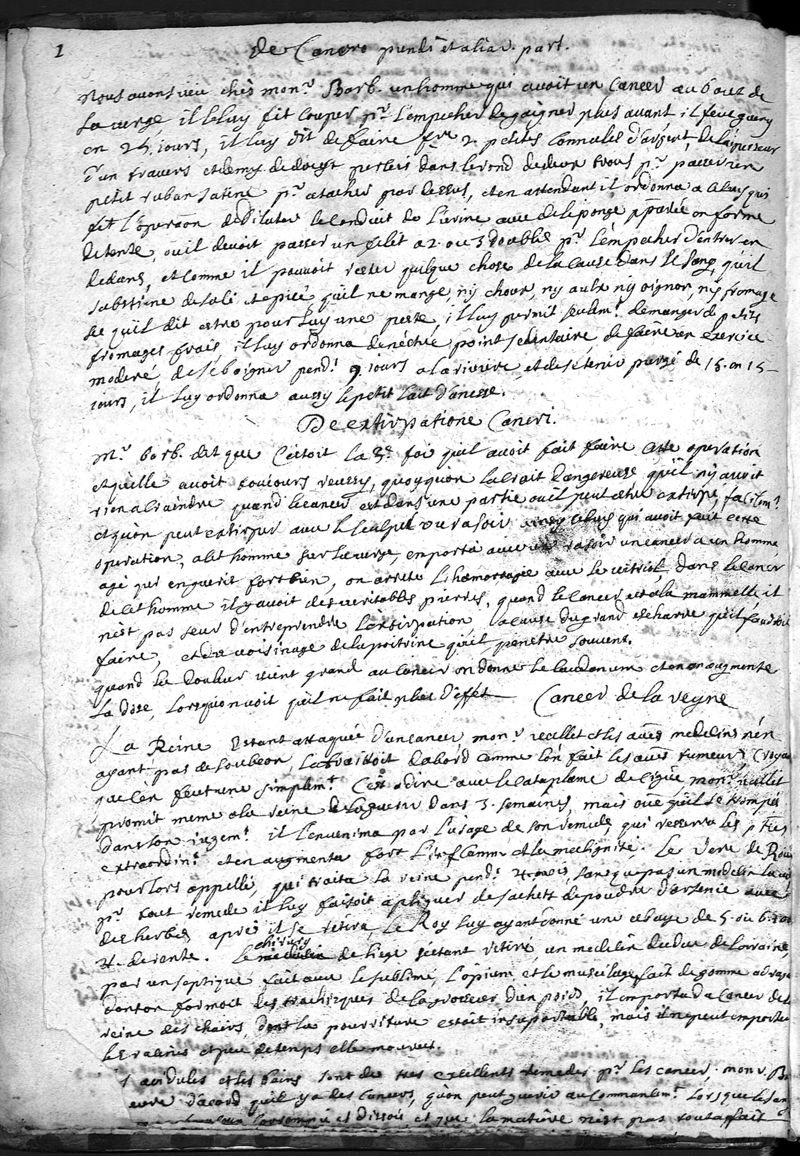 1
de Cancro penis et aliar. part.
Nous avons veu chés mon.r Barb. un homme qui avoit un Cancer au bout de
la verge, il le luy fit Couper p.r l'empecher de gaigner plus avant il feut guery
en 24 jours, il luy dit de faire f.re 2. petites Connules d'argent, de l'épesseur
d'un travers et demy de doigt percés dans le rond de deux trous p.r passer un
petit ruban satiné p.r atacher par dessus, et en attendant il ordonna a celuy qui
fit l'operaõn de dilater le Conduit de l'urine avec de l'eponge pparée en forme
de tente, ou il devoit passer un filet a 2. ou 3 doubles p.r l'empecher d'entrer en
dedans, et comme il pouvoit rester quelque chose de la cause dans le sang, qu'il
s'abstiene de salé et epicé qu'il ne mange, ny choux, ny aulx ny oignon, ny fromage
ce qu'il dit estre pour luy une peste, il luy permit seulem.t de manger de petits
fromages frais il luy ordonna de n'éstre point sedentaire de faire un exercice
moderé de se boigner pend.t 9. jours a la riviere et de se tenir purgé de 15. en 15-
jours, il luy ordonna aussy le petit lait d'anesse.
De extirpatione Cancri.
M.r barb. dit que C'estoit la 3.e foi qu'il avoit fait faire cette operation
et qu'elle avoit toujours reussy, quoy qu'on la crait dangereuse qu'il n'y avoit
rien a craindre quand le cancer est dans une partie ou il peut estre extirpé facilem.t
et qu'on peut extirper avec le scalpel ou rasoir celuy qui avoit fait cette
operation, a cet homme sur la verge, emporta avec un rasoir un cancer a un homme
agé qui en guerit fort bien, on arreta l'hemorragie avec le vitriol dans le cancer
de cet homme il y avoit des veritables pierres, quand le cancer est a la mammelle il
n'est pas seur d'entreprendre l'extirpation a cause du grand escharre qu'il faudroit
faire, et du voisinage de la poitrine qu'il penetre souvent.
quand la douleur vient grand au cancer on donne le laudanum et on en augmente
la dose, lorsqu'on voit qu'il ne fait plus d'effet Cancer de la reyne
La Reine Estant attaquée d'un cancer mon.r vallet et les aues medecins n'en
ayant pas de soubçon, le traittoit d'abord comme l'on fait les aues tumeurs Croyant
que l'en feut une simplem.t C'est a dire avec le cataplame de cigue, mon.r vallet
promit meme a la reine de la guerir dans 3. semaines, mais outre qu'il se trompa
dans son jugem.t il l'envenima par l'usage de son remede, qui resserra les pties
extraordin.t et en augmenta fort l'inflamm. et la malignité. Le
pour lors appellé, qui traita la reine pend.t mois, sans que pas un medecin la vit
p.r tout remede il luy faisoit apliquer de sachets de poudre d'arsenic avec
des herbes apres il se retira le Roy luy ayant donné une abaye de 5. ou 6.
de rente. Le chirurg de liege s'estant retiré, un medecin du duc de Lorraine,
par un septique fait avec le sublimé, l'opium et le mucilage fait de gomme adragant
dont on formoit des trochisques de la grosseur d'un poids, il emporta du Cancer de la
reine des chairs, dont la pourriture estoit insuportable, mais il ne peut emporter
les racines et peu de temps elle mourut.
et les bains sont de tres excellents remedes p.r les cancer, mon.r B
d'acord qu'il y a des Cancers, qu'on peut guerir au Commancem.t lors que le sang
et dissous et que la matiere n'est pas tout a fait